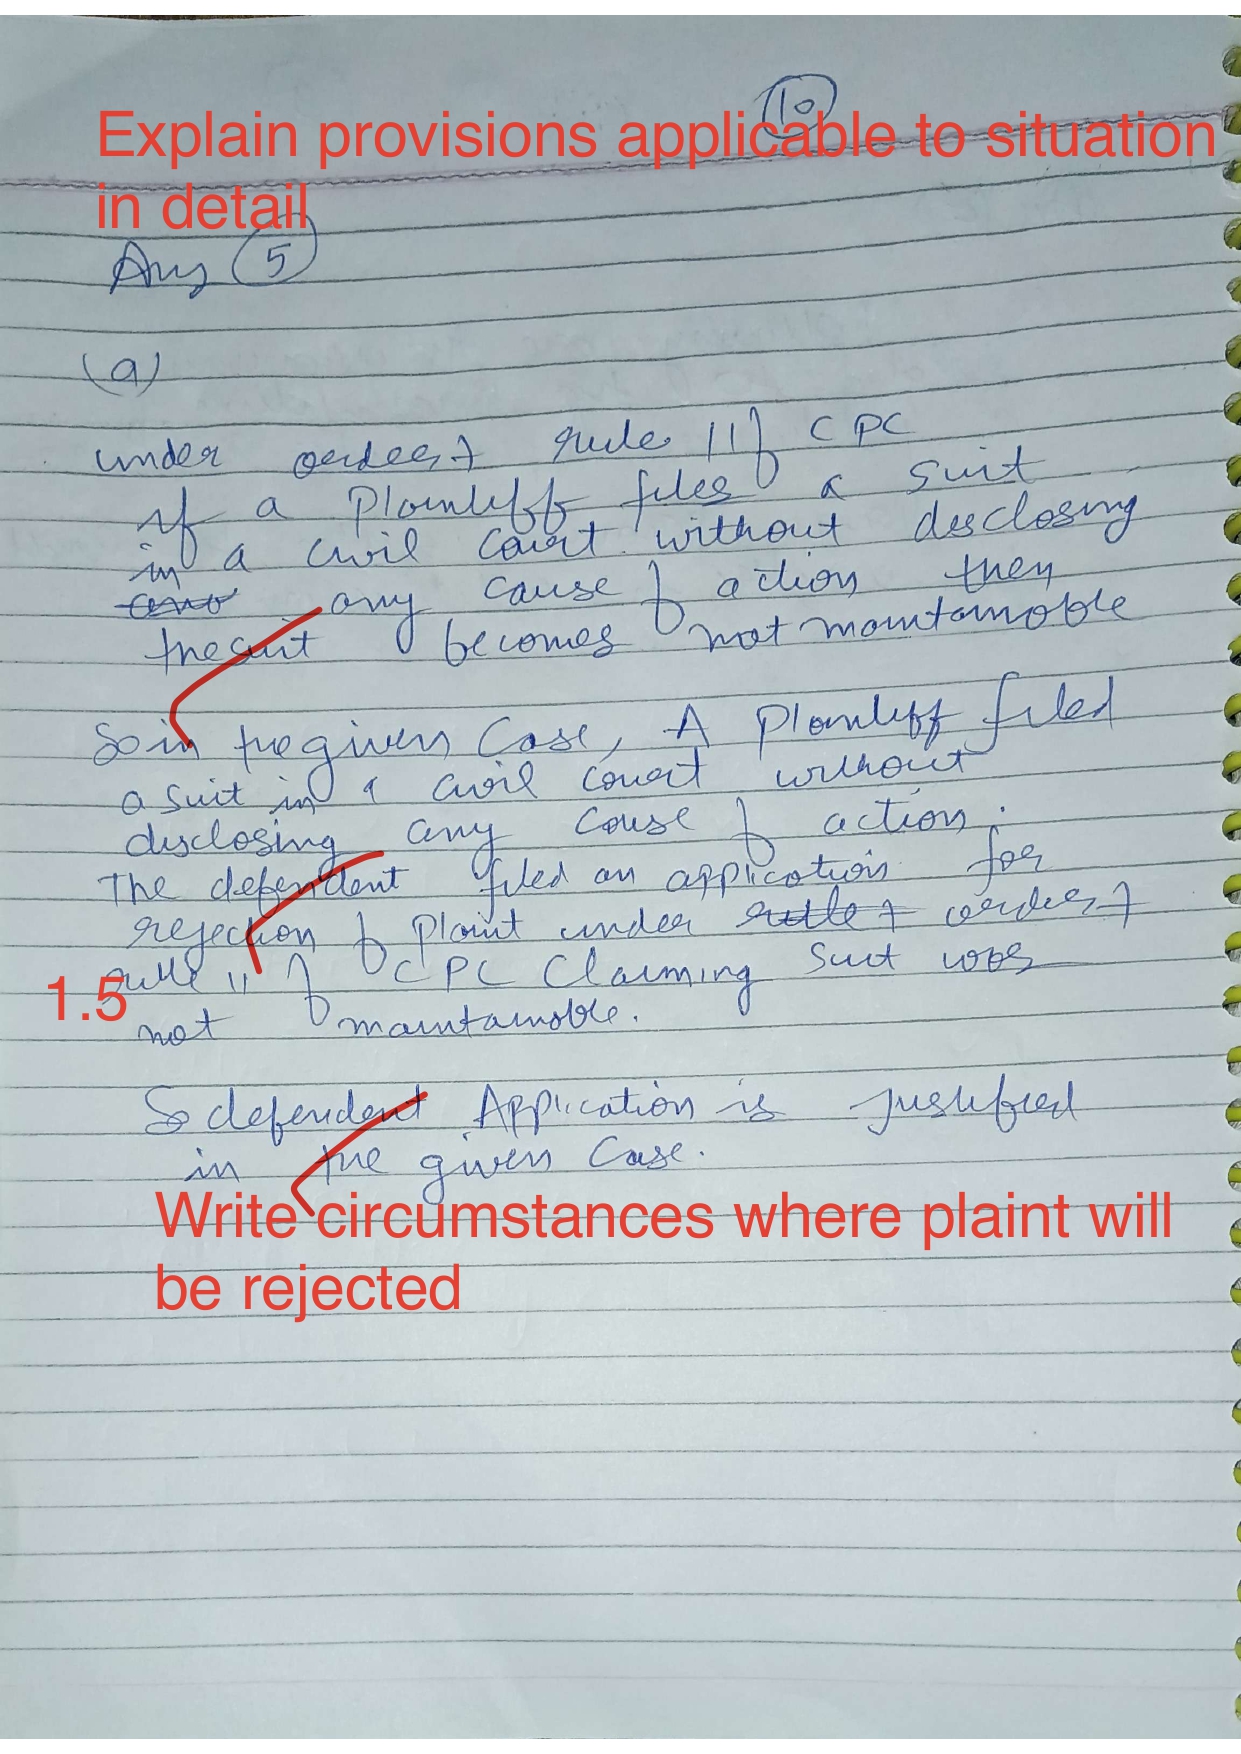 10
Explain provisions applicable to situation
in detail
Ans 5
(a)
under order 7 rule 11 of CPC
if a Plaintiff files a suit
in a civil court without disclosing
any cause of action then
the suit becomes not maintainable
So in the given Case, A Plaintiff filed
a suit in a civil court without
disclosing any cause of action.
The defendent filed an application for
rejection of plaint under rule 7 order 7
rule 11 of CPC Claiming suit was
1.5
not maintainable.
So defendent Application is Justified
in the given Case.
Write circumstances where plaint will
be rejected